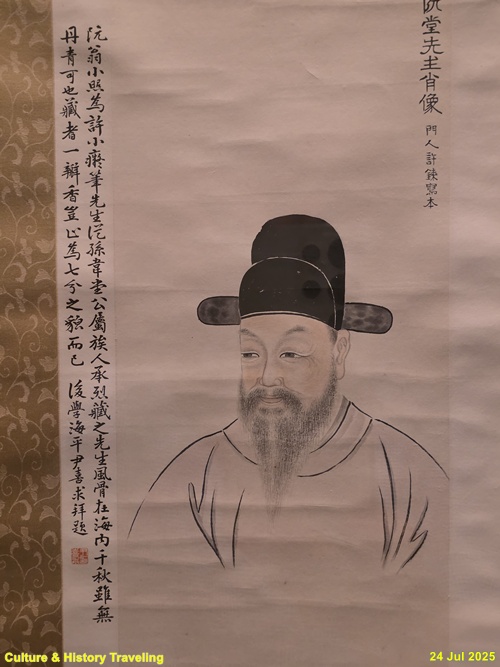 阮堂先生肖像
門人許鍊寫本
阮翁小照為許小癡筆先生從孫韋堂公屬族人承烈藏之先生風骨在海內千秋雖無
丹青可也藏者一瓣香豈止為七分之貌而已 後學海平尹喜求拜題
Culture & History Traveling
24 Jul 2025